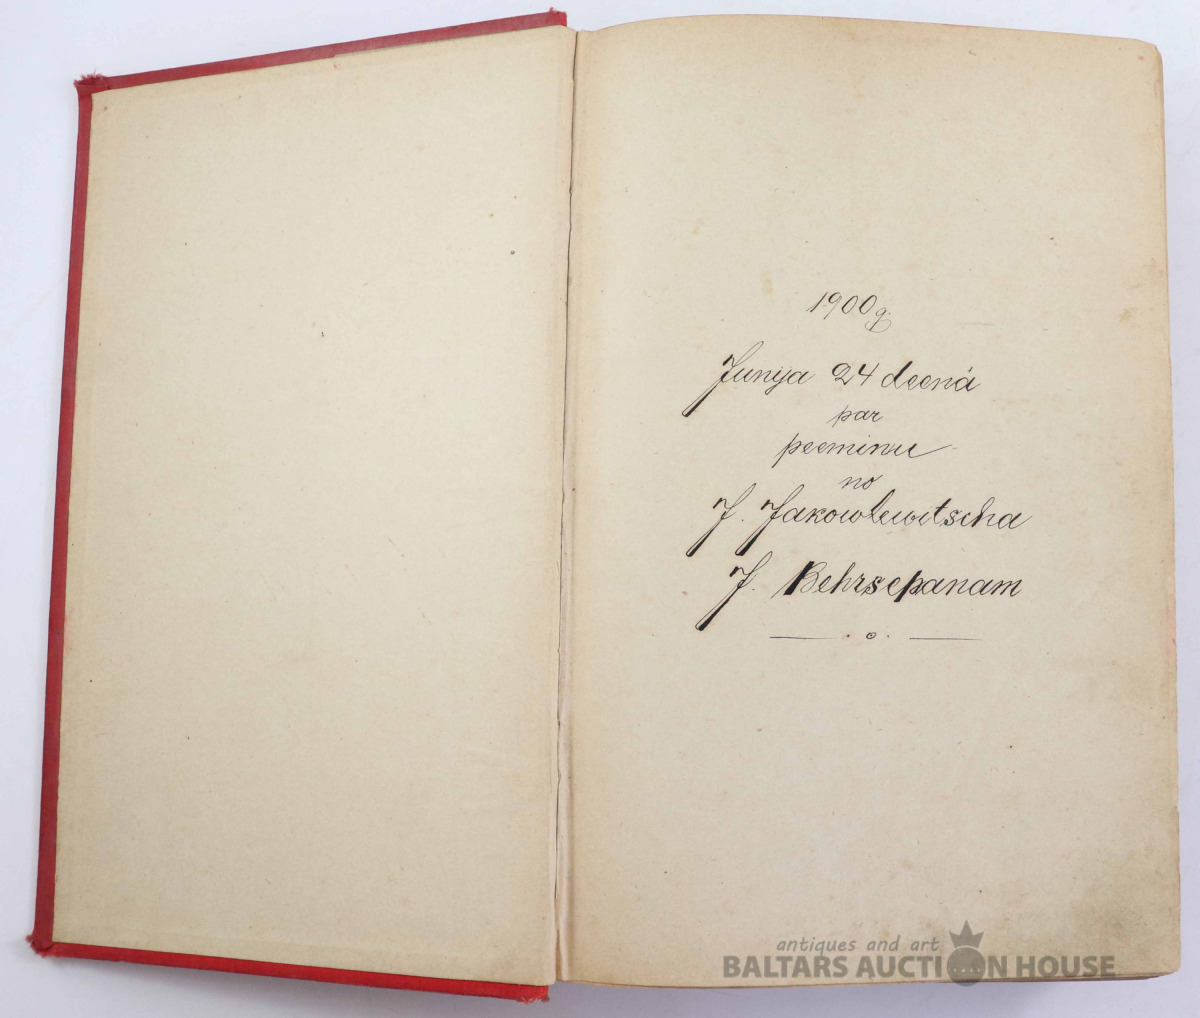 1900 g.
Junija 24 deená
par
peeminu
no
J. Jakowlewitscha
J. Behrsepanam
antiques and art
BALTARS AUCTION HOUSE